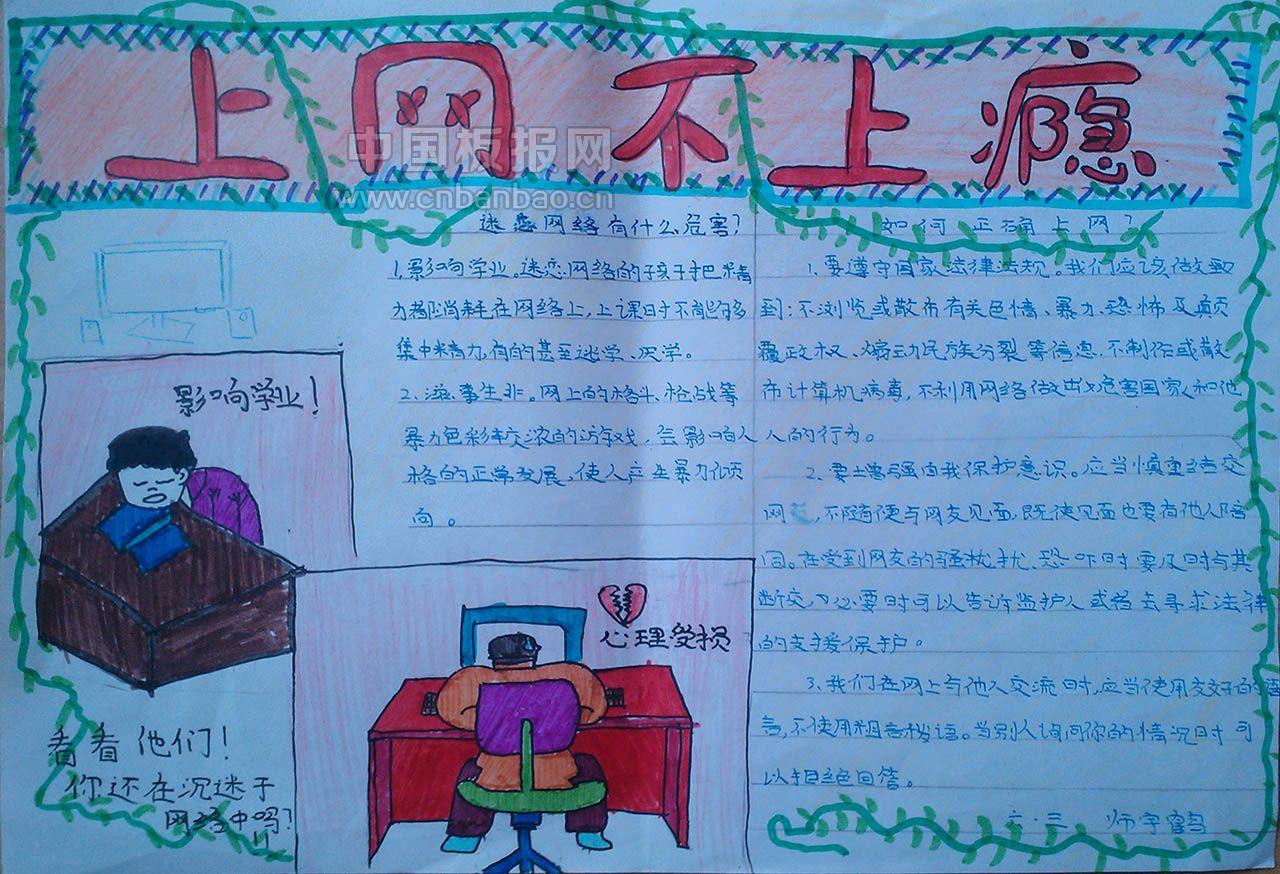 上网不上瘾
中国板报网
www.cnbanbao.cn
迷恋网络有什么危害?
1.影响学业。迷恋网络的孩子把精
力都消耗在网络上,上课时不能够多
集中精力,有的甚至逃学、厌学。
2.滋事生非。网上的格斗、枪战等
暴力色彩较浓的游戏,会影响人
格的正常发展,使人产生暴力倾
向。
如何正确上网?
1.要遵守国家法律法规。我们应该做致
到:不浏览或散布有关色情、暴力、恐怖及颠
覆政权、煽动民族分裂等信息,不制作或散
布计算机病毒,不利用网络做出危害国家和他
人的行为。
2.要增强自我保护意识。应当慎重结交
网友,不随便与网友见面,既使见面也要有他人陪
同。在受到网友的骚扰扰、恐吓时要及时与其
断交,必要时可以告诉监护人或者去寻求法律
的支援保护。
3.我们在网上与他人交流时,应当使用友好的语
言,不使用粗言秽语。当别人询问你的情况时可
以拒绝回答。
六·三 师宇鹤
影响学业!
心理受损
看看他们!
你还在沉迷于
网络中吗?
!!